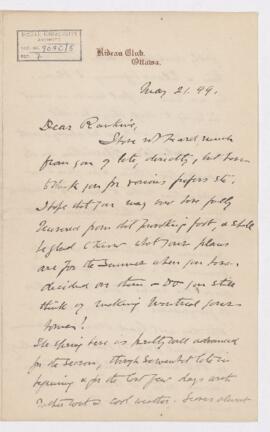 McGILL UNIVERSITY
ARCHIVES
ACC. NO. 909C/5
REF. 7
Rideau Club,
Ottawa.
May 21. 99.
Dear Rankine,
I have not heard much
from you of late, directly, but have
to thank you for various papers etc.
I hope that you may now be fully
recovered from that foot, & shall
be glad to know what your plans
are for the Summer when you have
decided on them – Do you still
think of making Montreal your
home?
The spring here is pretty well advanced
for the season, though somewhat late in
beginning & for the last few days with
rather wet & cool weather.